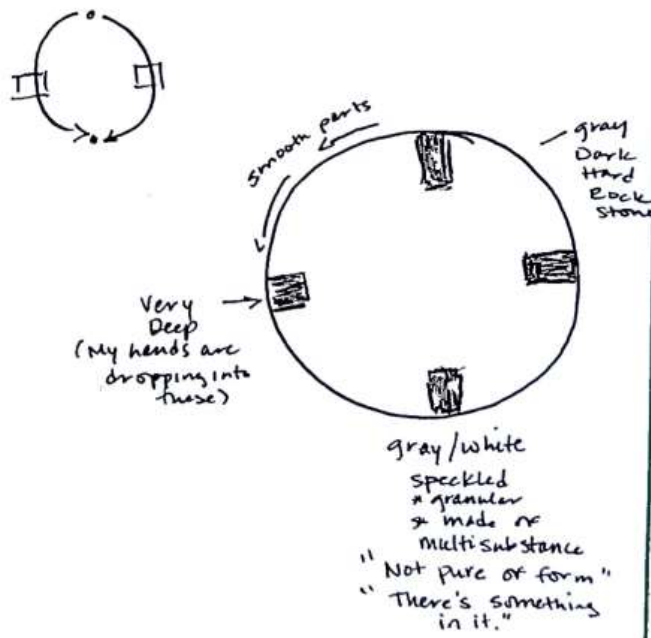 smooth parts
gray
Dark
Hard
Rock
Stone
Very
Deep
(My hands are
dropping into
these)
gray/white
speckled
* granular
* made of
multisubstance
"Not pure of form"
"There's something
in it."